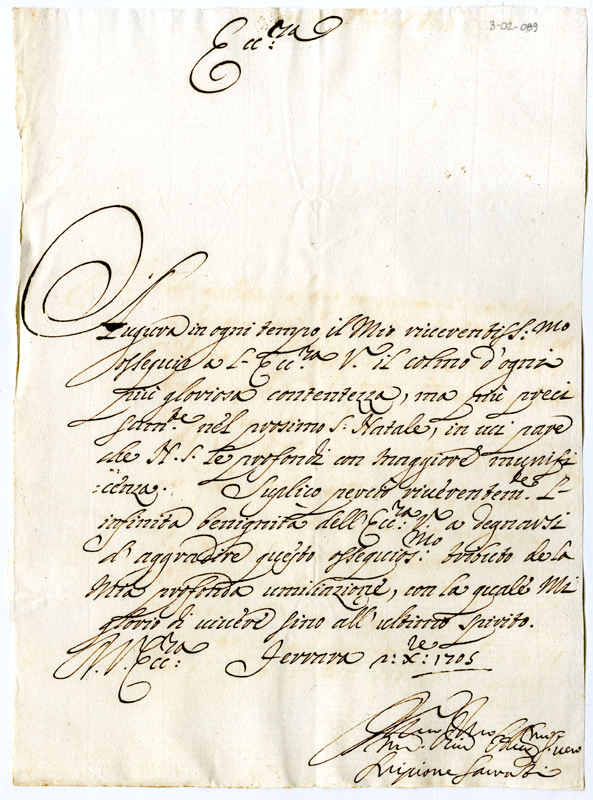 3-02-089
Ecc.za
Augura in ogni tempo il Mio riverentiss: mo
ossequio a l- Ecc.za V.a il colmo d'ogni
più gloriosa contentezza, ma più preci
sam.te nel prosimo S. Natale, in cui pare
che N. S. le profondi con maggiore munifi
:cenza. Suplico perciò riverentem.te l-
infinita benignità dell'Ecc.za V.a a degnarsi
d'aggradire questo ossequios:mo tributo de la
Mia profonda umiliazione, con la quale Mi
glorio di vivere sino all'ultimo spirito.
D. V. Ecc:za Ferrara p:re X: 1705
Scipione